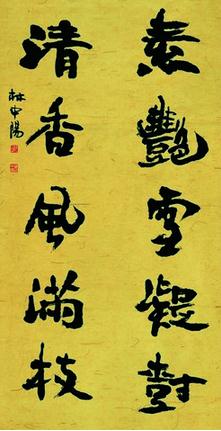 素艷雪凝樹
清香風滿枝
林中陽